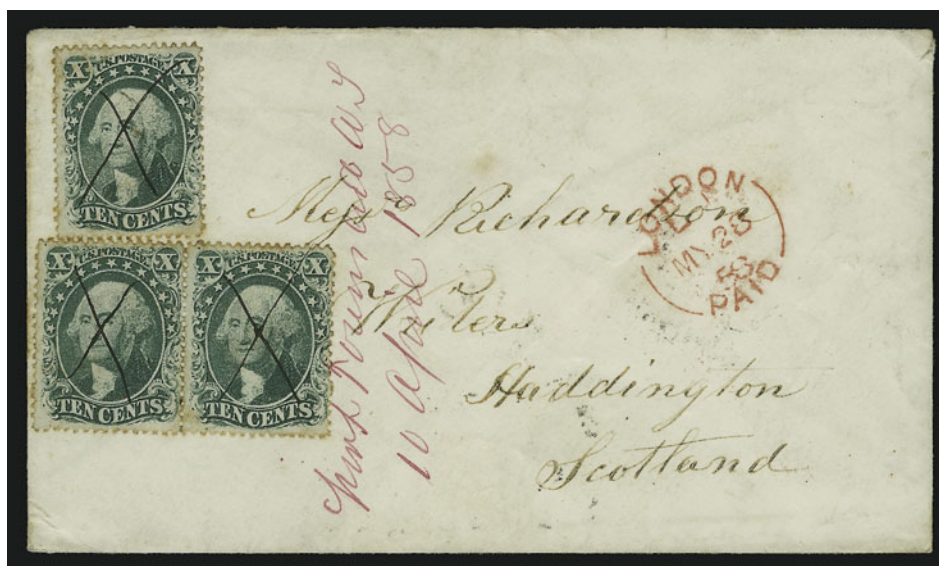 X U.S. POSTAGE X
TEN CENTS
X U.S. POSTAGE X
TEN CENTS
X U.S. POSTAGE X
TEN CENTS
10 April 1858
Messrs Richardson
Writers
Haddington
Scotland
LONDON
MY 28
58
PAID